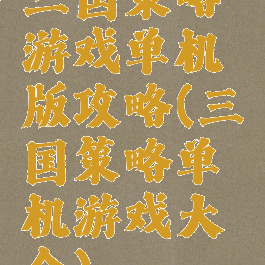 三国策略
游戏单机
版攻略(三
国策略单
机游戏大
全)